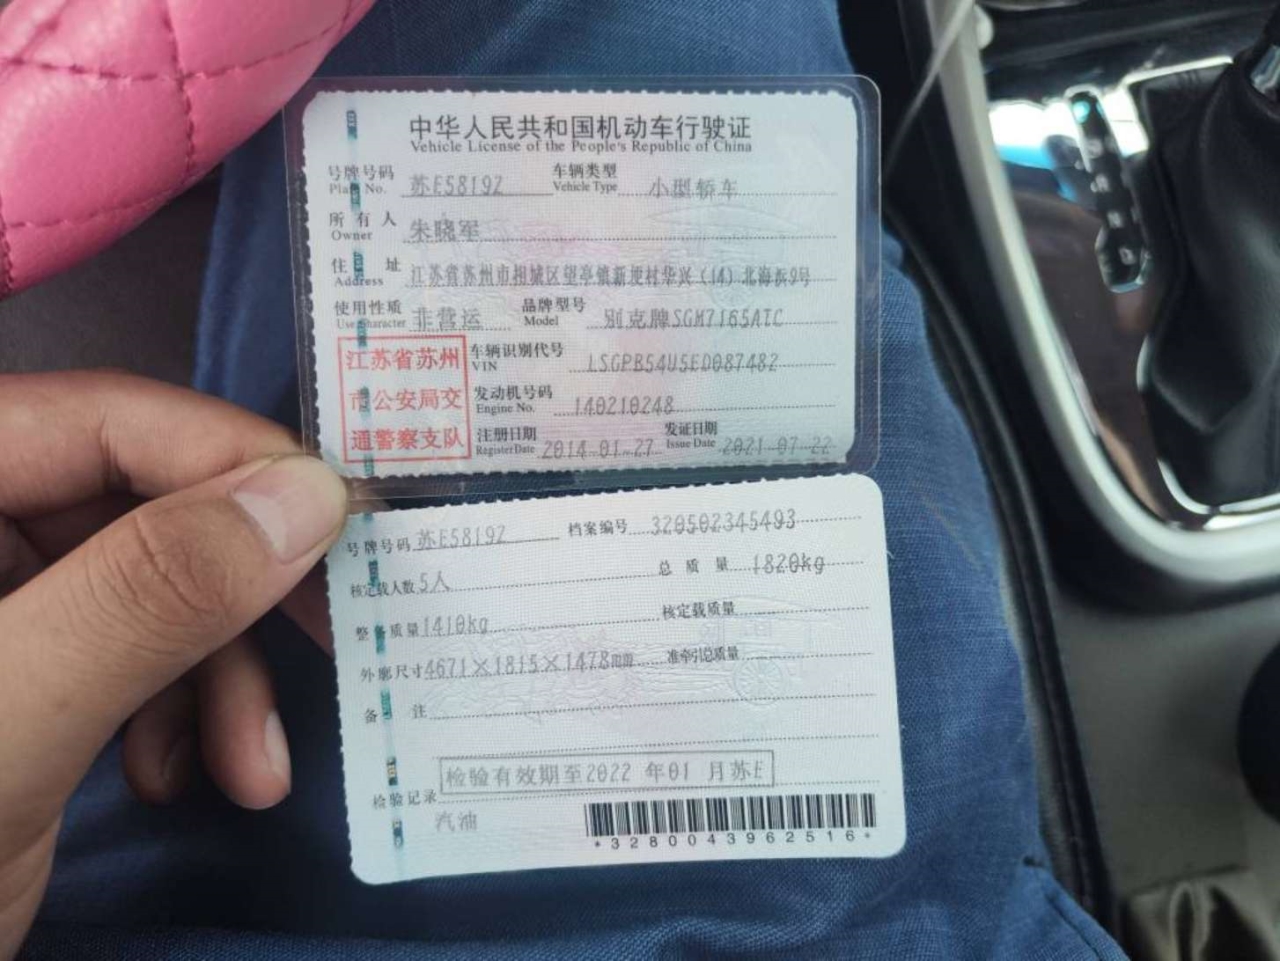 中华人民共和国机动车行驶证
Vehicle License of the People's Republic of China
号牌号码 苏E5819Z 车辆类型 小型轿车
Plate No. Vehicle Type
所有人 朱晓军
Owner
住址 江苏省苏州市相城区望亭镇新埂村华兴(14)北海浜9号
Address
使用性质 非营运 品牌型号 别克牌SGM7165ATC
Use Character Model
江苏省苏州 车辆识别代号 LSGPB54U5ED087482
VIN
市公安局交 发动机号码 140210248
Engine No.
通警察支队 注册日期 2014-01-27 发证日期 2021-07-22
Register Date Issue Date
号牌号码 苏E5819Z 档案编号 320502345493
核定载人数 5人 总质量 1820kg
整备质量 1410kg 核定载质量
外廓尺寸 4671×1815×1478mm 准牵引总质量
备注
检验有效期至2022 年01 月苏E
检验记录
汽油
*3280043962516*